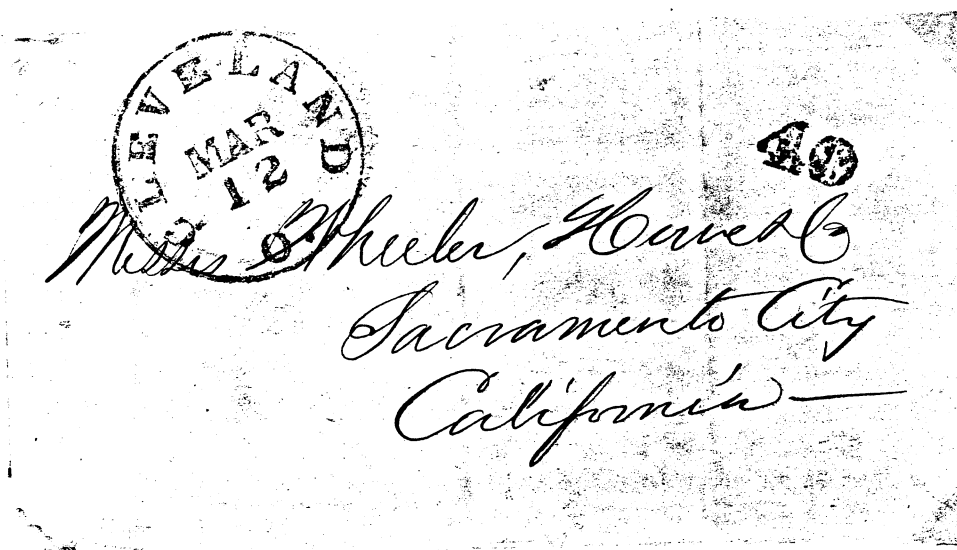 CLEVELAND O.
MAR
12
40
Messrs Wheeler, Howes & Co
Sacramento City
California —